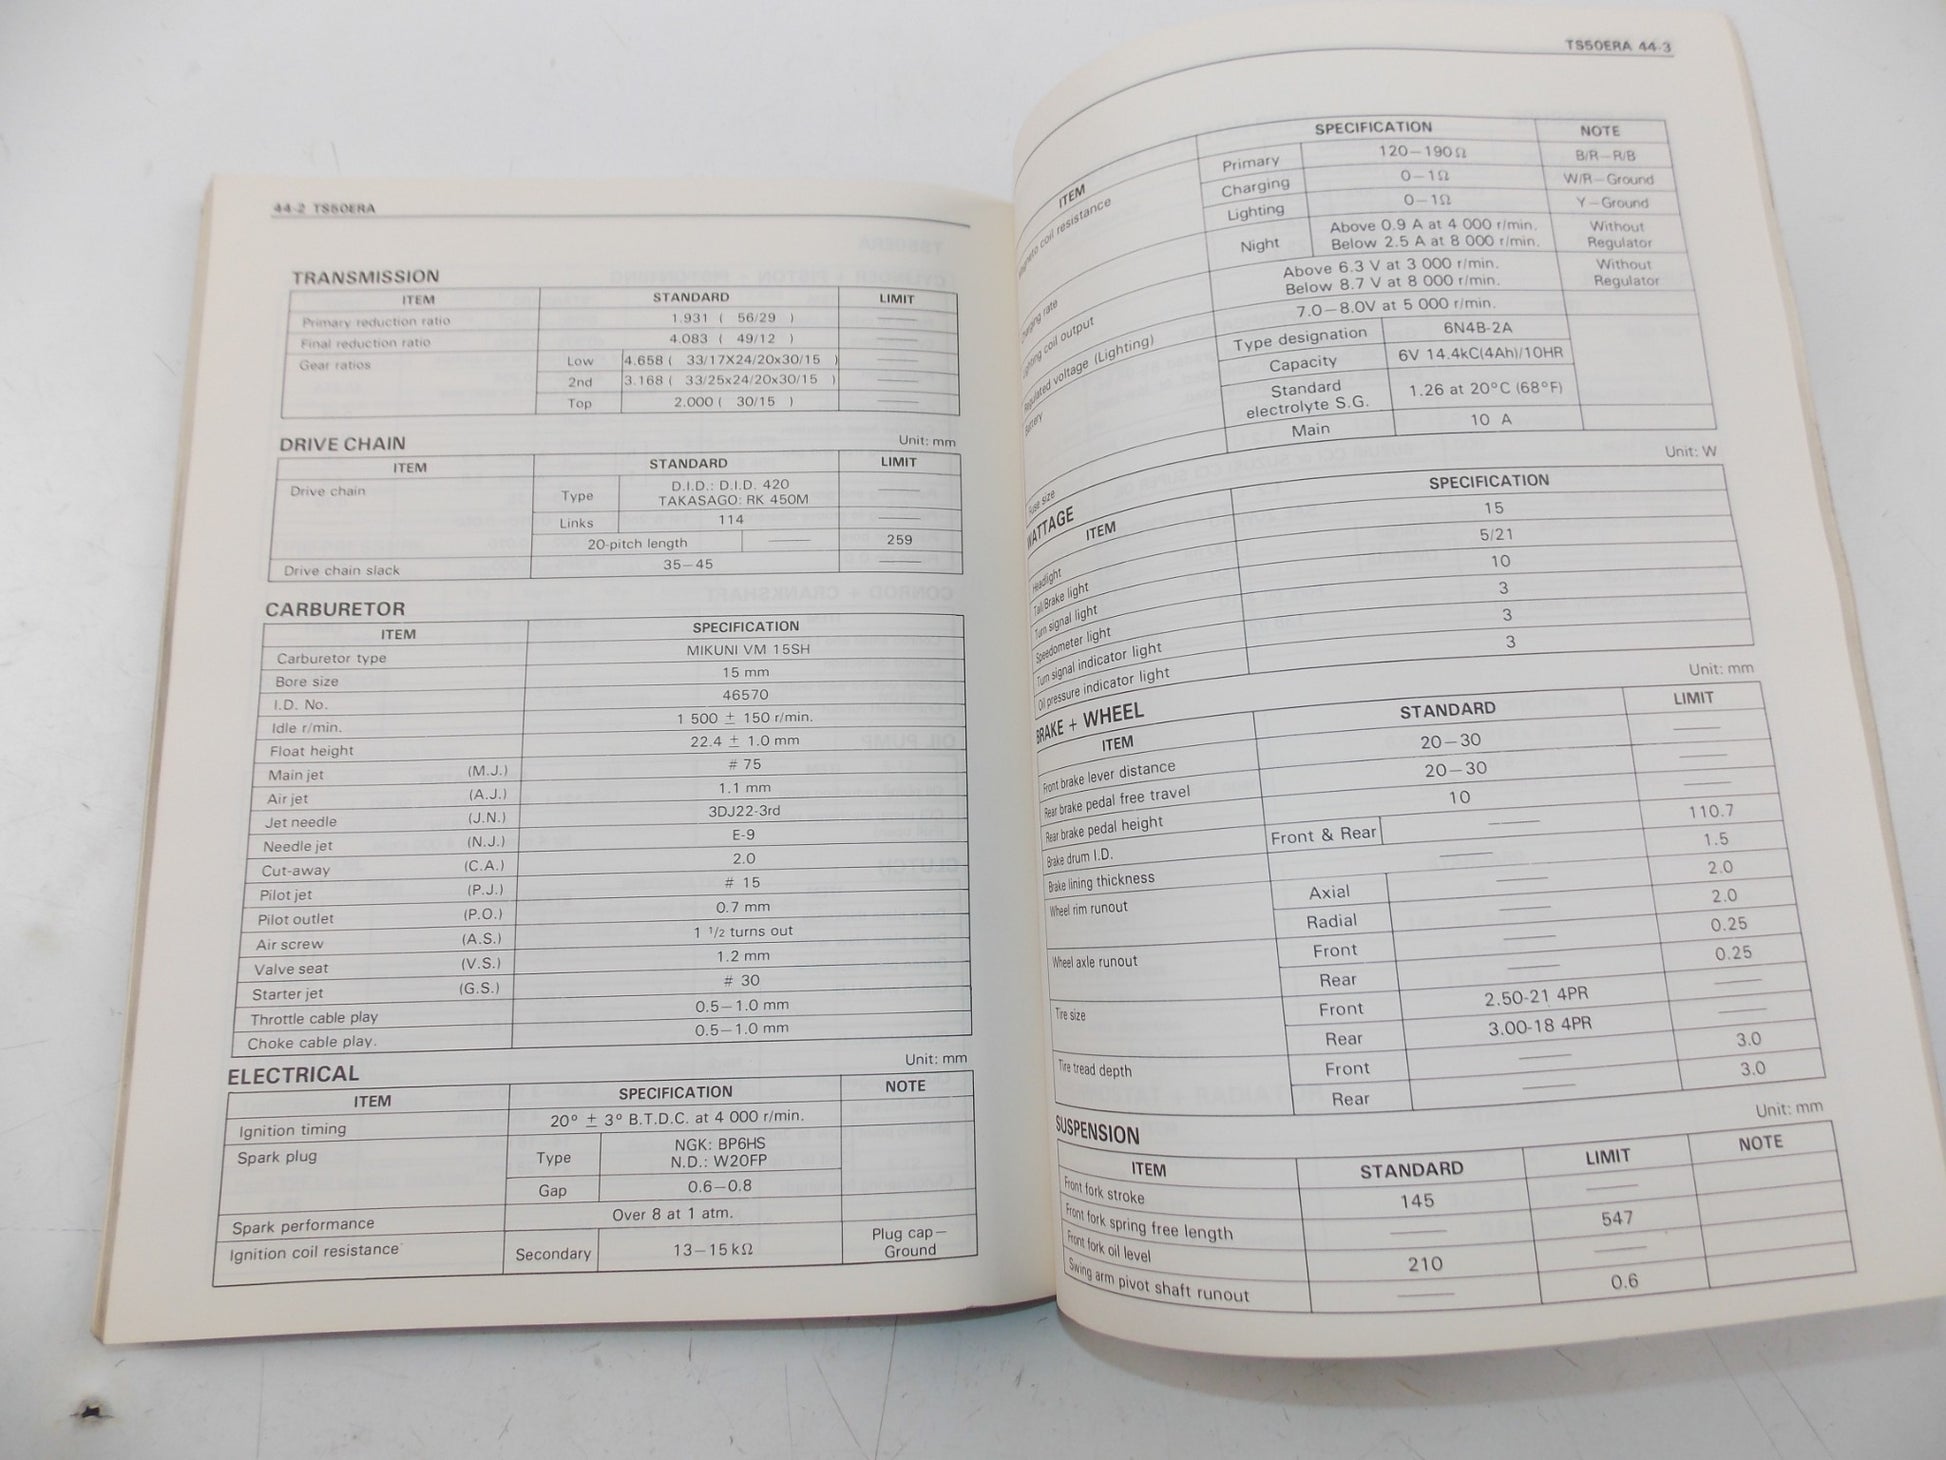 44-2 TS50ERA
TRANSMISSION
ITEM STANDARD LIMIT
Primary reduction ratio 1.931 ( 56/29 ) ——
Final reduction ratio 4.083 ( 49/12 ) ——
Gear ratios Low 4.658 ( 33/17X24/20x30/15 ) ——
2nd 3.168 ( 33/25x24/20x30/15 ) ——
Top 2.000 ( 30/15 ) ——
DRIVE CHAIN Unit: mm
ITEM STANDARD LIMIT
Drive chain Type D.I.D.: D.I.D. 420
TAKASAGO: RK 450M ——
Links 114 ——
20-pitch length —— 259
Drive chain slack 35–45 ——
CARBURETOR
ITEM SPECIFICATION
Carburetor type MIKUNI VM 15SH
Bore size 15 mm
I.D. No. 46570
Idle r/min. 1 500 ± 150 r/min.
Float height 22.4 ± 1.0 mm
Main jet (M.J.) # 75
Air jet (A.J.) 1.1 mm
Jet needle (J.N.) 3DJ22-3rd
Needle jet (N.J.) E-9
Cut-away (C.A.) 2.0
Pilot jet (P.J.) # 15
Pilot outlet (P.O.) 0.7 mm
Air screw (A.S.) 1 1/2 turns out
Valve seat (V.S.) 1.2 mm
Starter jet (G.S.) # 30
Throttle cable play 0.5–1.0 mm
Choke cable play. 0.5–1.0 mm
ELECTRICAL Unit: mm
ITEM SPECIFICATION NOTE
Ignition timing 20° ± 3° B.T.D.C. at 4 000 r/min.
Spark plug Type NGK: BP6HS
N.D.: W20FP
Gap 0.6–0.8
Spark performance Over 8 at 1 atm.
Ignition coil resistance Secondary 13–15 kΩ Plug cap–
Ground
TS50ERA 44-3
ITEM SPECIFICATION NOTE
Magneto coil resistance Primary 120–190 Ω B/R–R/B
Charging 0–1 Ω W/R–Ground
Lighting 0–1 Ω Y–Ground
Charging rate Night Above 0.9 A at 4 000 r/min.
Below 2.5 A at 8 000 r/min. Without
Regulator
Lighting coil output Above 6.3 V at 3 000 r/min.
Below 8.7 V at 8 000 r/min. Without
Regulator
Regulated voltage (Lighting) 7.0–8.0V at 5 000 r/min.
Battery Type designation 6N4B-2A
Capacity 6V 14.4kC(4Ah)/10HR
Standard
electrolyte S.G. 1.26 at 20°C (68°F)
Fuse size Main 10 A
WATTAGE Unit: W
ITEM SPECIFICATION
Headlight 15
Tail/Brake light 5/21
Turn signal light 10
Speedometer light 3
Turn signal indicator light 3
Oil pressure indicator light 3
BRAKE + WHEEL Unit: mm
ITEM STANDARD LIMIT
Front brake lever distance 20–30 ——
Rear brake pedal free travel 20–30 ——
Rear brake pedal height 10 ——
Brake drum I.D. Front & Rear —— 110.7
Brake lining thickness —— 1.5
Wheel rim runout Axial —— 2.0
Radial —— 2.0
Wheel axle runout Front —— 0.25
Rear —— 0.25
Tire size Front 2.50-21 4PR ——
Rear 3.00-18 4PR ——
Tire tread depth Front —— 3.0
Rear —— 3.0
SUSPENSION Unit: mm
ITEM STANDARD LIMIT NOTE
Front fork stroke 145 ——
Front fork spring free length —— 547
Front fork oil level 210 ——
Swing arm pivot shaft runout —— 0.6